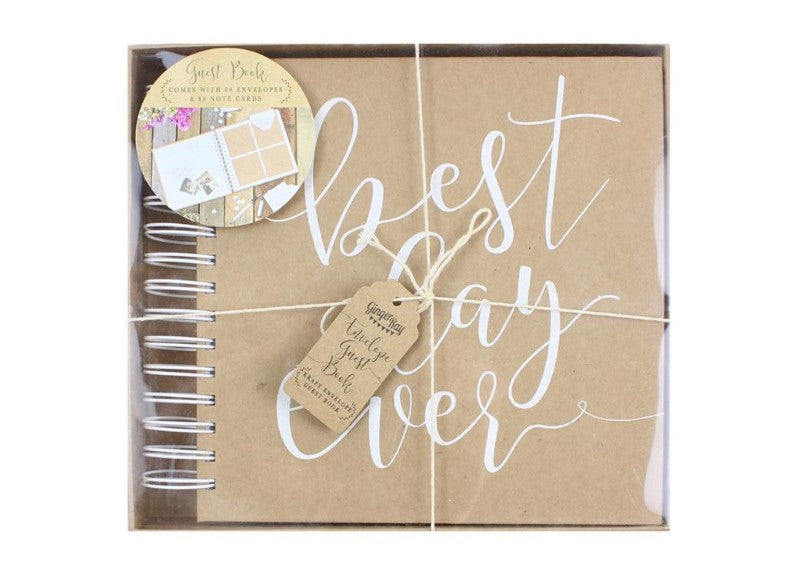 Guest Book
COMES WITH 20 ENVELOPES
& 20 NOTE CARDS
best
day
ever
Ginger Ray
Envelope
Guest
Book
KRAFT ENVELOPE
GUEST BOOK